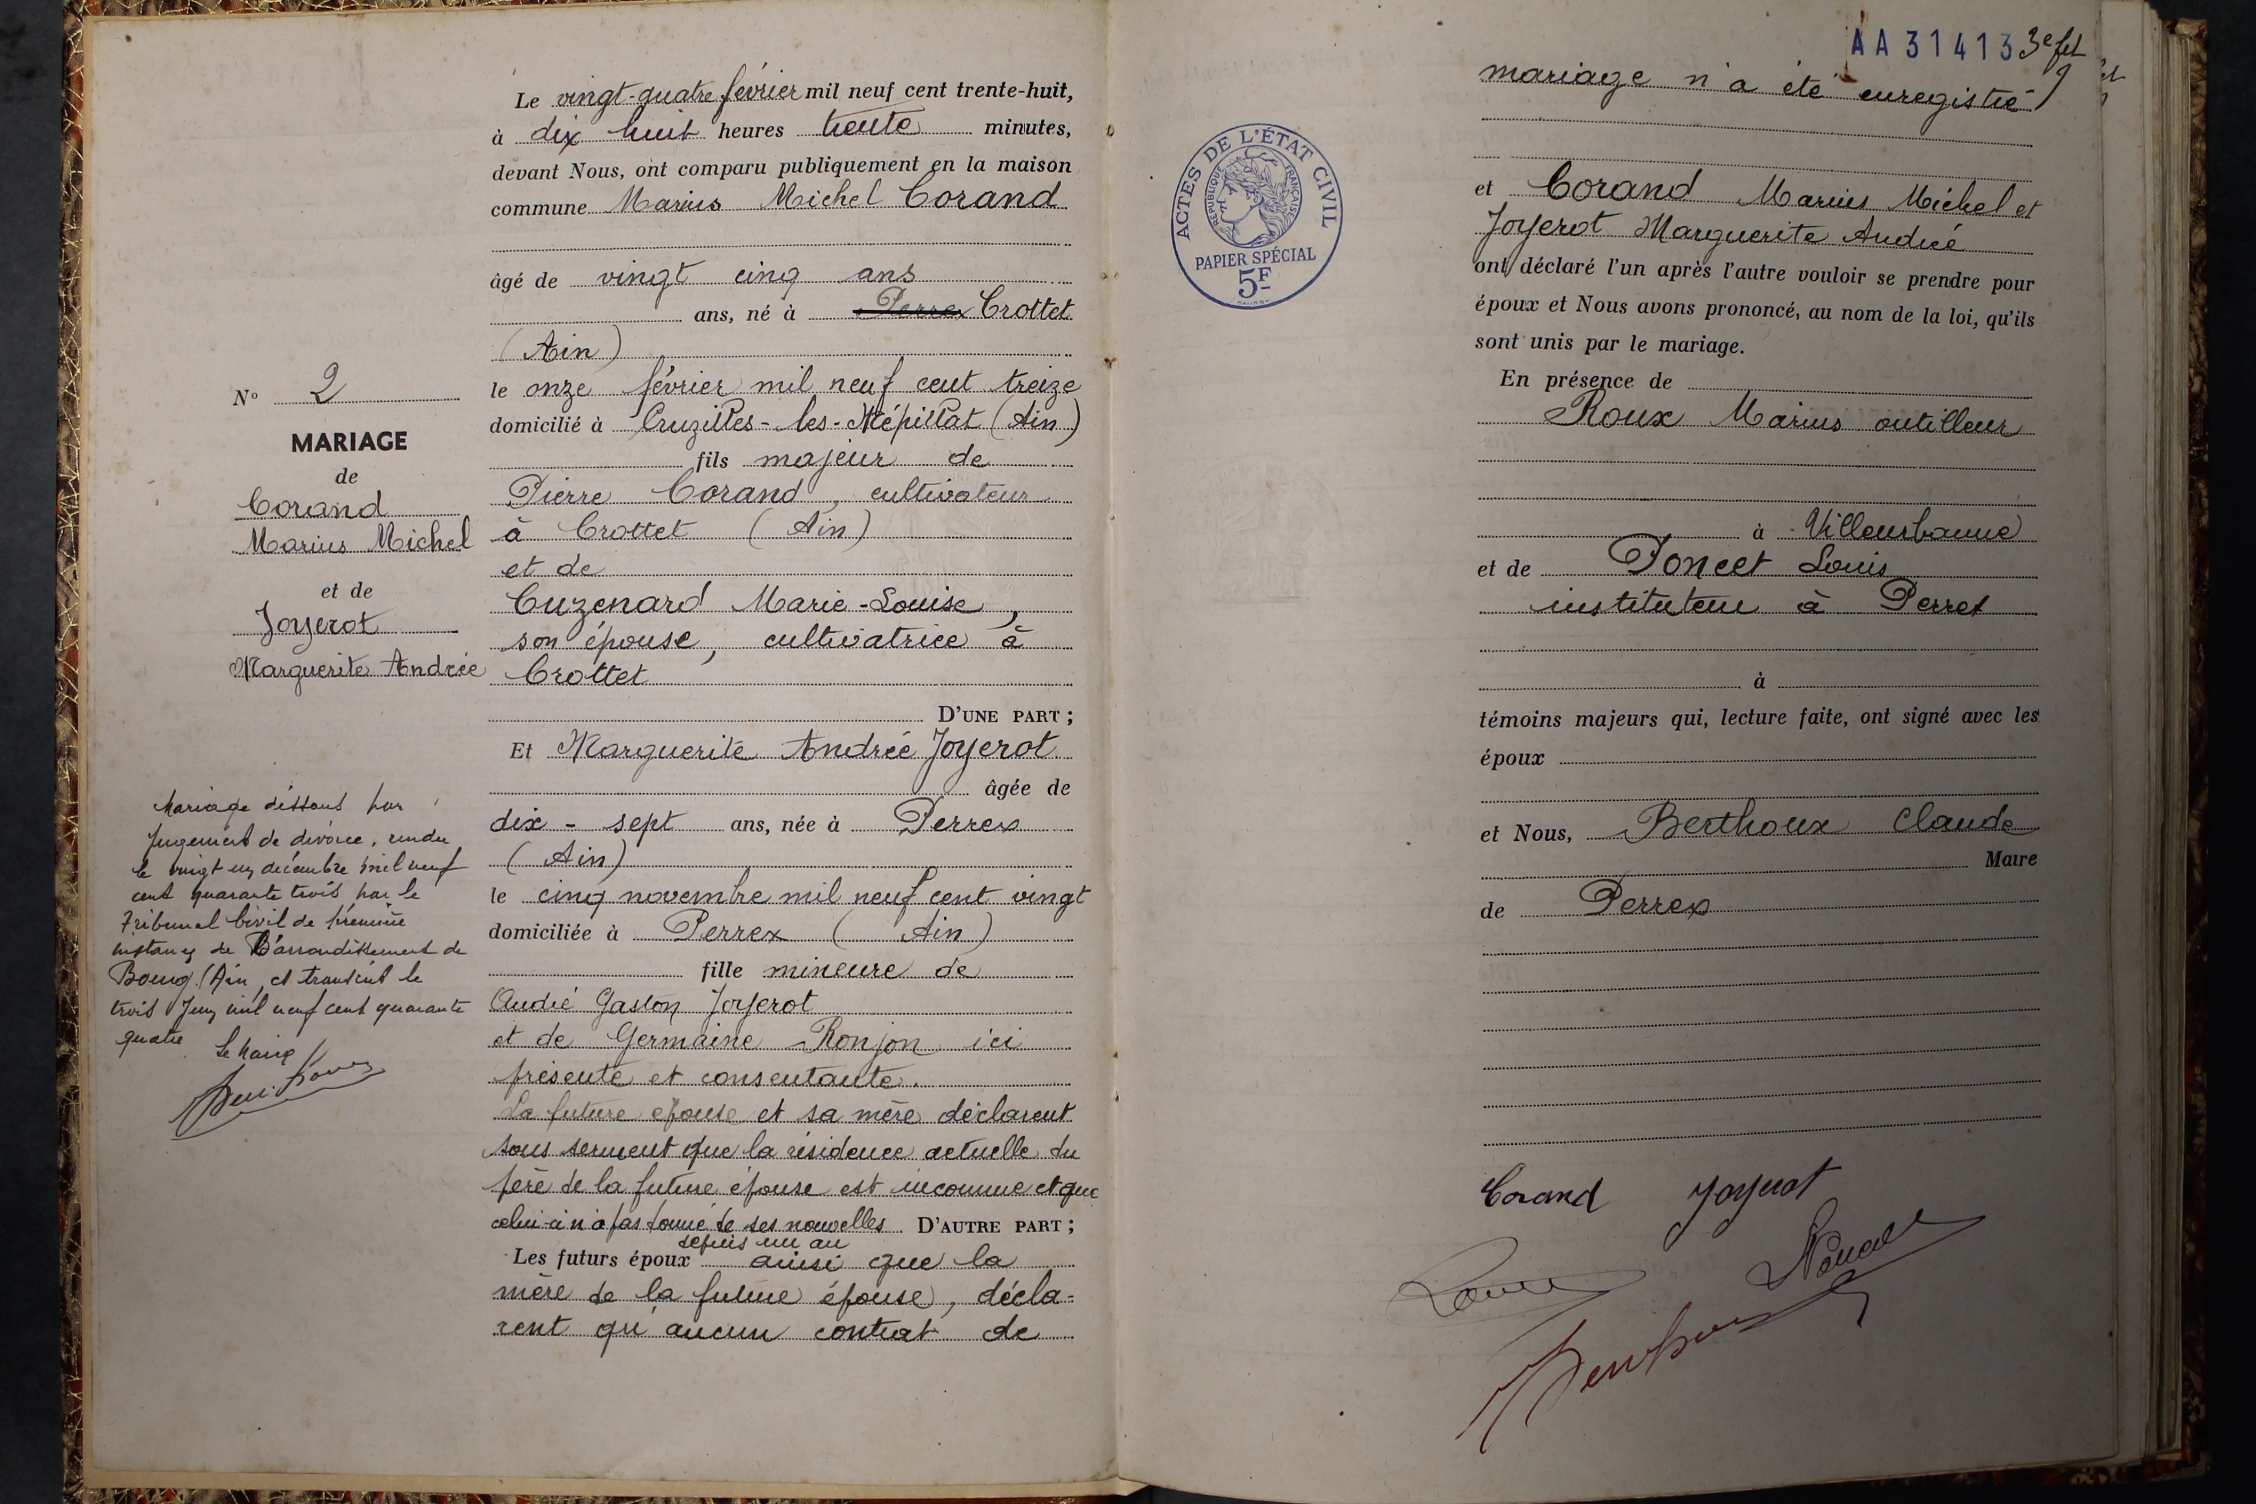 N° 2
MARIAGE
de
Corand
Marius Michel
et de
Joyerot
Marguerite Andrée
Mariage dissous par
jugement de divorce, rendu
le vingt un décembre mil neuf
cent quarante trois par le
Tribunal Civil de première
instance de l'arrondissement de
Bourg (Ain, et transcrit le
trois Juin mil neuf cent quarante
quatre
Le Maire
Le vingt-quatre février mil neuf cent trente-huit,
à dix huit heures trente minutes,
devant Nous, ont comparu publiquement en la maison
commune Marius Michel Corand
âgé de vingt cinq ans
ans, né à Perrex Crottet
(Ain)
le onze février mil neuf cent treize
domicilié à Cruzilles-les-Mépillat (Ain)
fils majeur de
Pierre Corand, cultivateur
à Crottet (Ain)
et de
Cuzenard Marie-Louise,
son épouse, cultivatrice à
Crottet
D'UNE PART;
Et Marguerite Andrée Joyerot
âgée de
dix-sept ans, née à Perrex
(Ain)
le cinq novembre mil neuf cent vingt
domiciliée à Perrex (Ain)
fille mineure de
André Gaston Joyerot
et de Germaine Ronjon ici
présente et consentante.
La future epouse et sa mère déclarent
sous serment que la résidence actuelle du
père de la future épouse est inconnue et que
celui-ci n'a pas donné de ses nouvelles D'AUTRE PART;
depuis un an
Les futurs époux ainsi que la
mère de la future épouse, décla-
rent qu'aucun contrat de
ACTES DE L'ÉTAT CIVIL
RÉPUBLIQUE FRANÇAISE
PAPIER SPÉCIAL
5F
AA 31413 3e ft
mariage n'a été enregistré
et Corand Marius Michel et
Joyerot Marguerite André
ont déclaré l'un après l'autre vouloir se prendre pour
époux et Nous avons prononcé, au nom de la loi, qu'ils
sont unis par le mariage.
En présence de
Roux Marius outilleur
à Villeurbanne
et de Poncet Louis
instituteur à Perrex
à
témoins majeurs qui, lecture faite, ont signé avec les
époux
et Nous, Berthoux Claude
Maire
de Perrex
Corand Joyerot